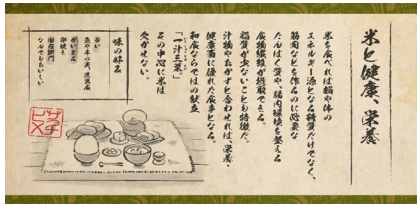 米と健康、栄養
米を食べれば脳や体の
エネルギー源となる糖質だけでなく、
筋肉などを作るのに必要な
たんぱく質や、腸内環境を整える
食物繊維が摂取できる。
脂質が少ないことも特徴だ。
汁物やおかずと合わせれば、栄養・
健康面に優れた食事となる。
和食ならではの献立
「一汁三菜」
その中心に米は
欠かせない。
味の好み
なんでもおいしい